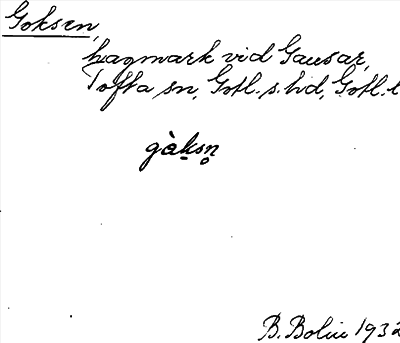 Goksen,
hagmark vid Gausar,
Tofta sn, Gotl. s. hd, Gotl. l
gàksn̥
B. Bolin 1932